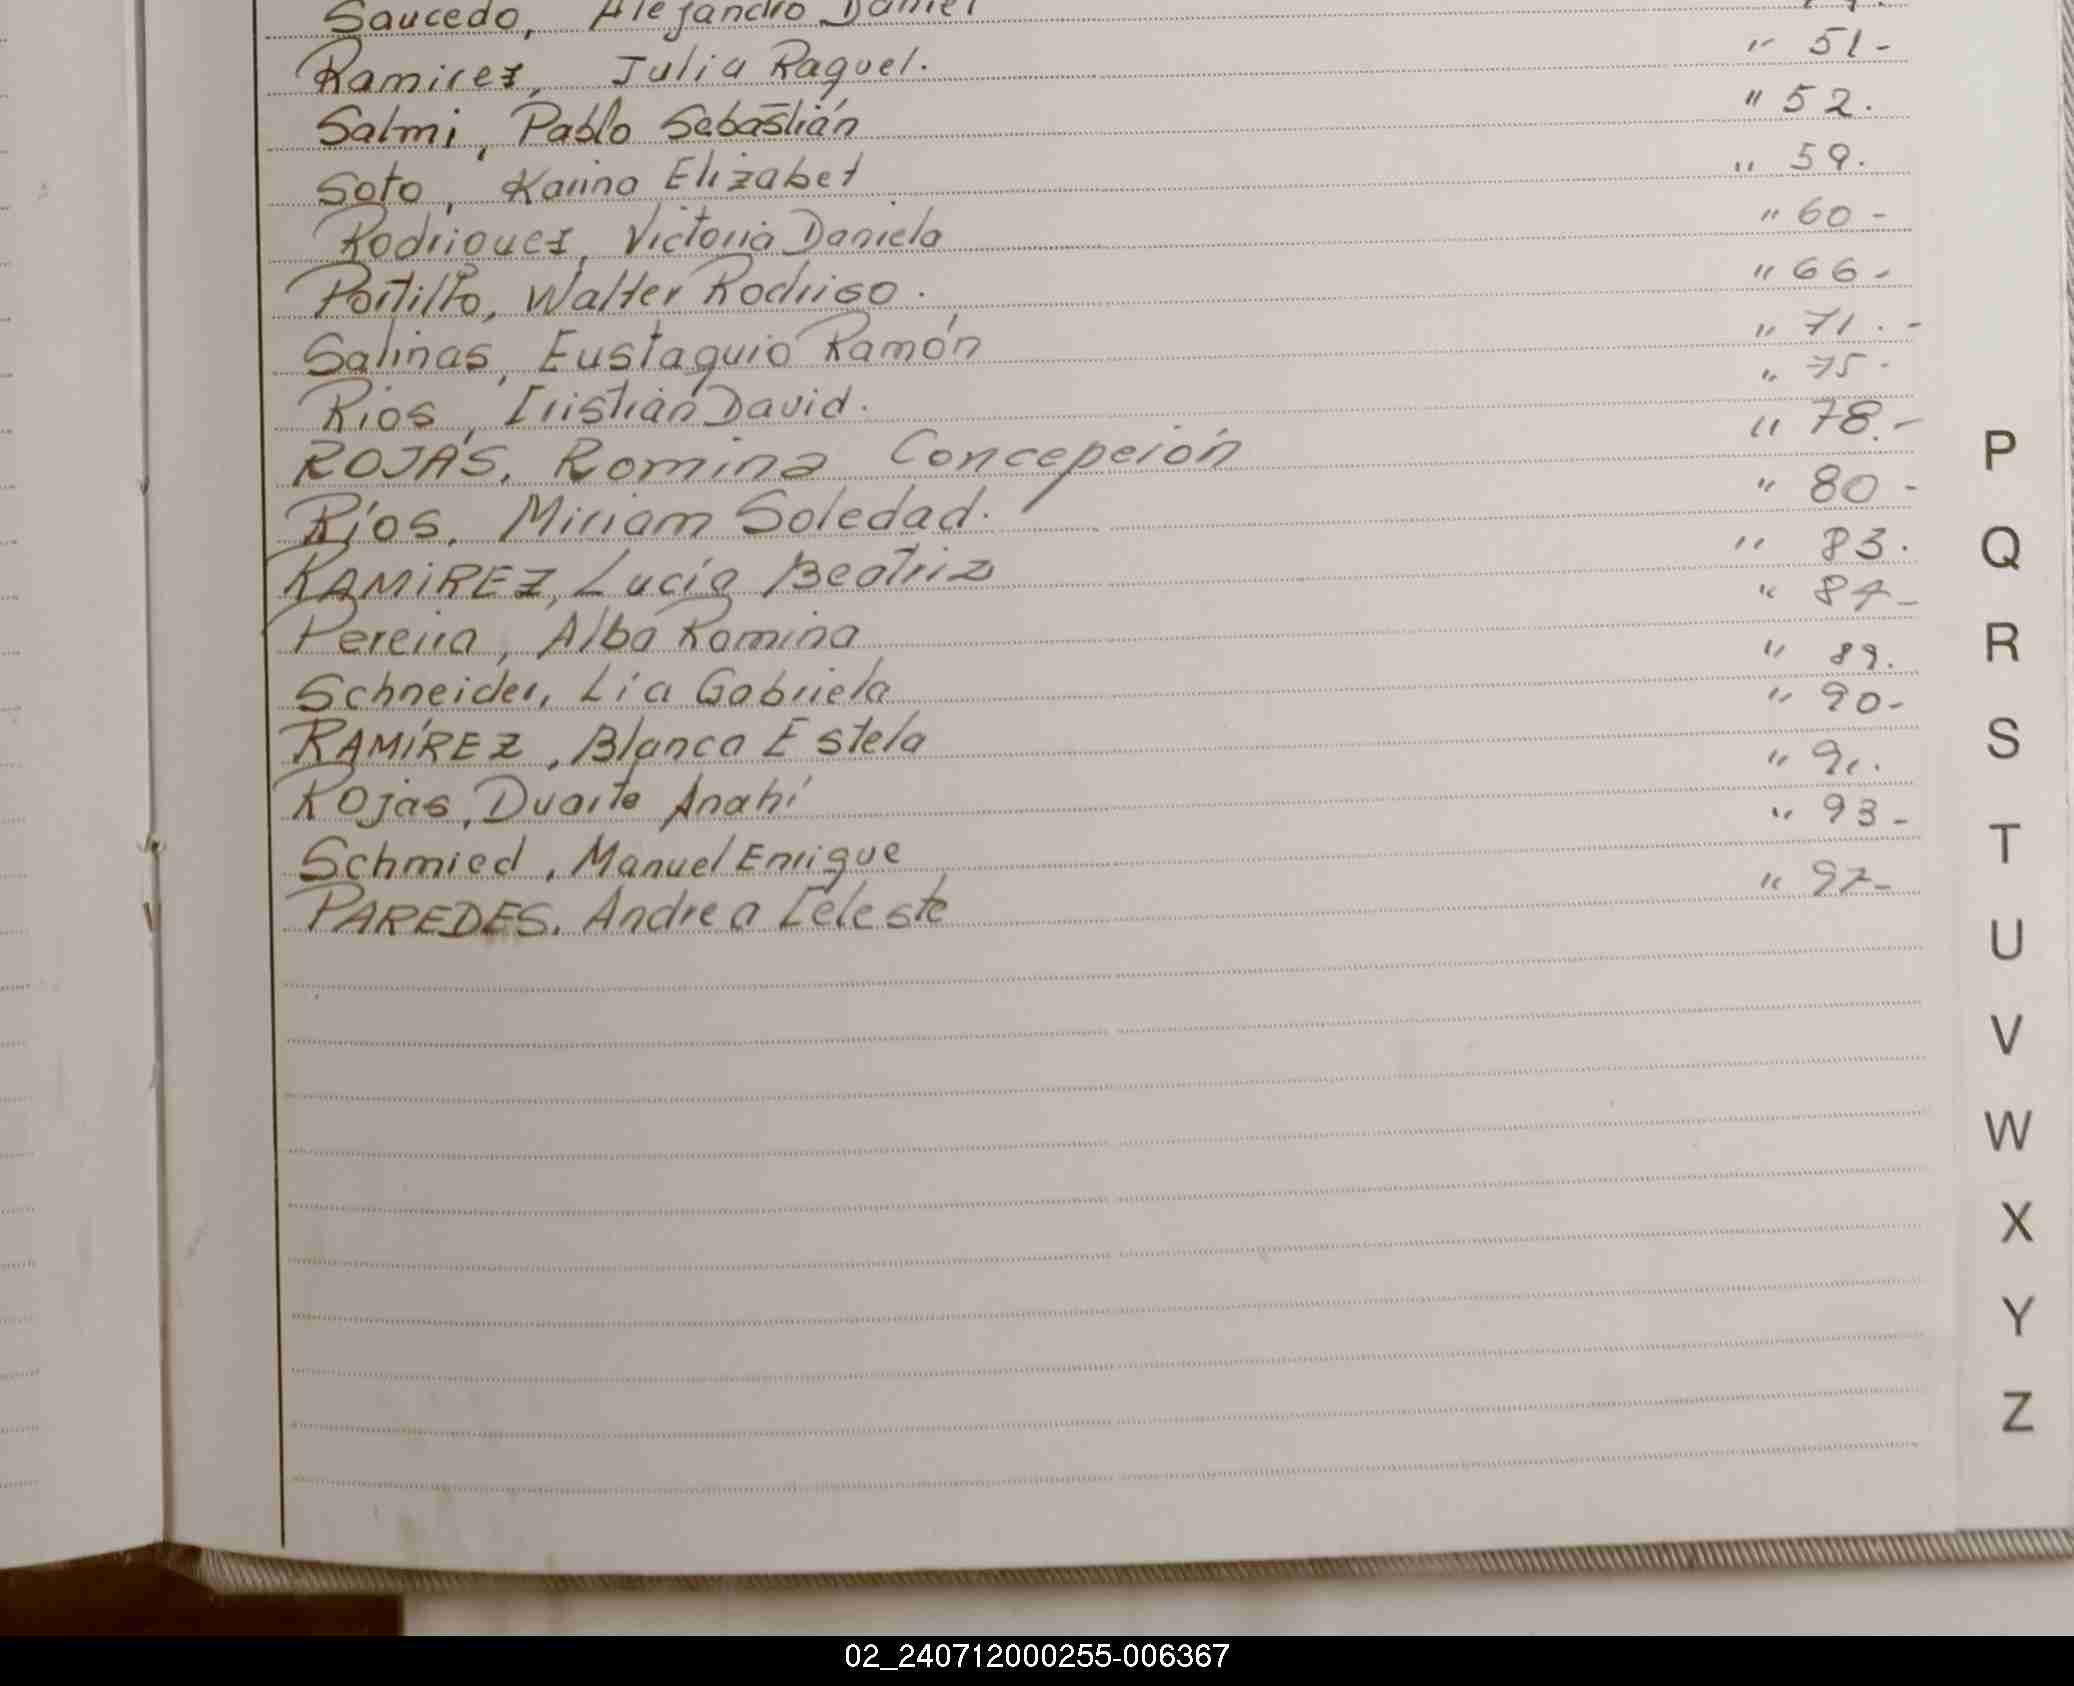 Saucedo, Alejandro Daniel
Ramirez, Julia Raquel. " 51-
Salmi, Pablo Sebastián " 52.
Soto, Karina Elizabet " 59.
Rodriguez, Victoria Daniela " 60-
Portillo, Walter Rodrigo. " 66-
Salinas, Eustaquio Ramón " 71.-
Rios, Cristian David. " 75-
ROJAS, Romina Concepción " 78.-
Ríos, Miriam Soledad. " 80-
RAMIREZ, Lucía Beatriz " 83.
Pereira, Alba Romina " 87-
Schneider, Lia Gabriela " 89.
RAMÍREZ, Blanca Estela " 90-
Rojas, Duarte Anahí " 91.
Schmied, Manuel Enrique " 93-
PAREDES, Andrea Celeste " 97-
P
Q
R
S
T
U
V
W
X
Y
Z
02_240712000255-006367